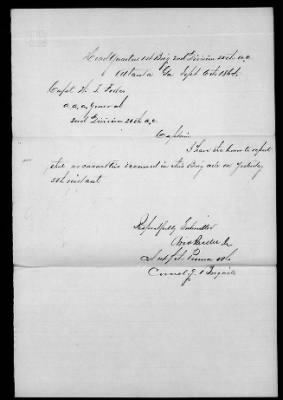 Head Quarters 1st Brig 2nd Division 20th A.C.
Atlanta Ga Sept 6th 1864
Capt. H. T. Forbes
A.A.A. General
2nd Division 20th A.C.
Captain
I have the honor to report
that no casualties occurred in this Brigade on yesterday
5th instant.
Respectfully Submitted
Comd'g 1 Brigade